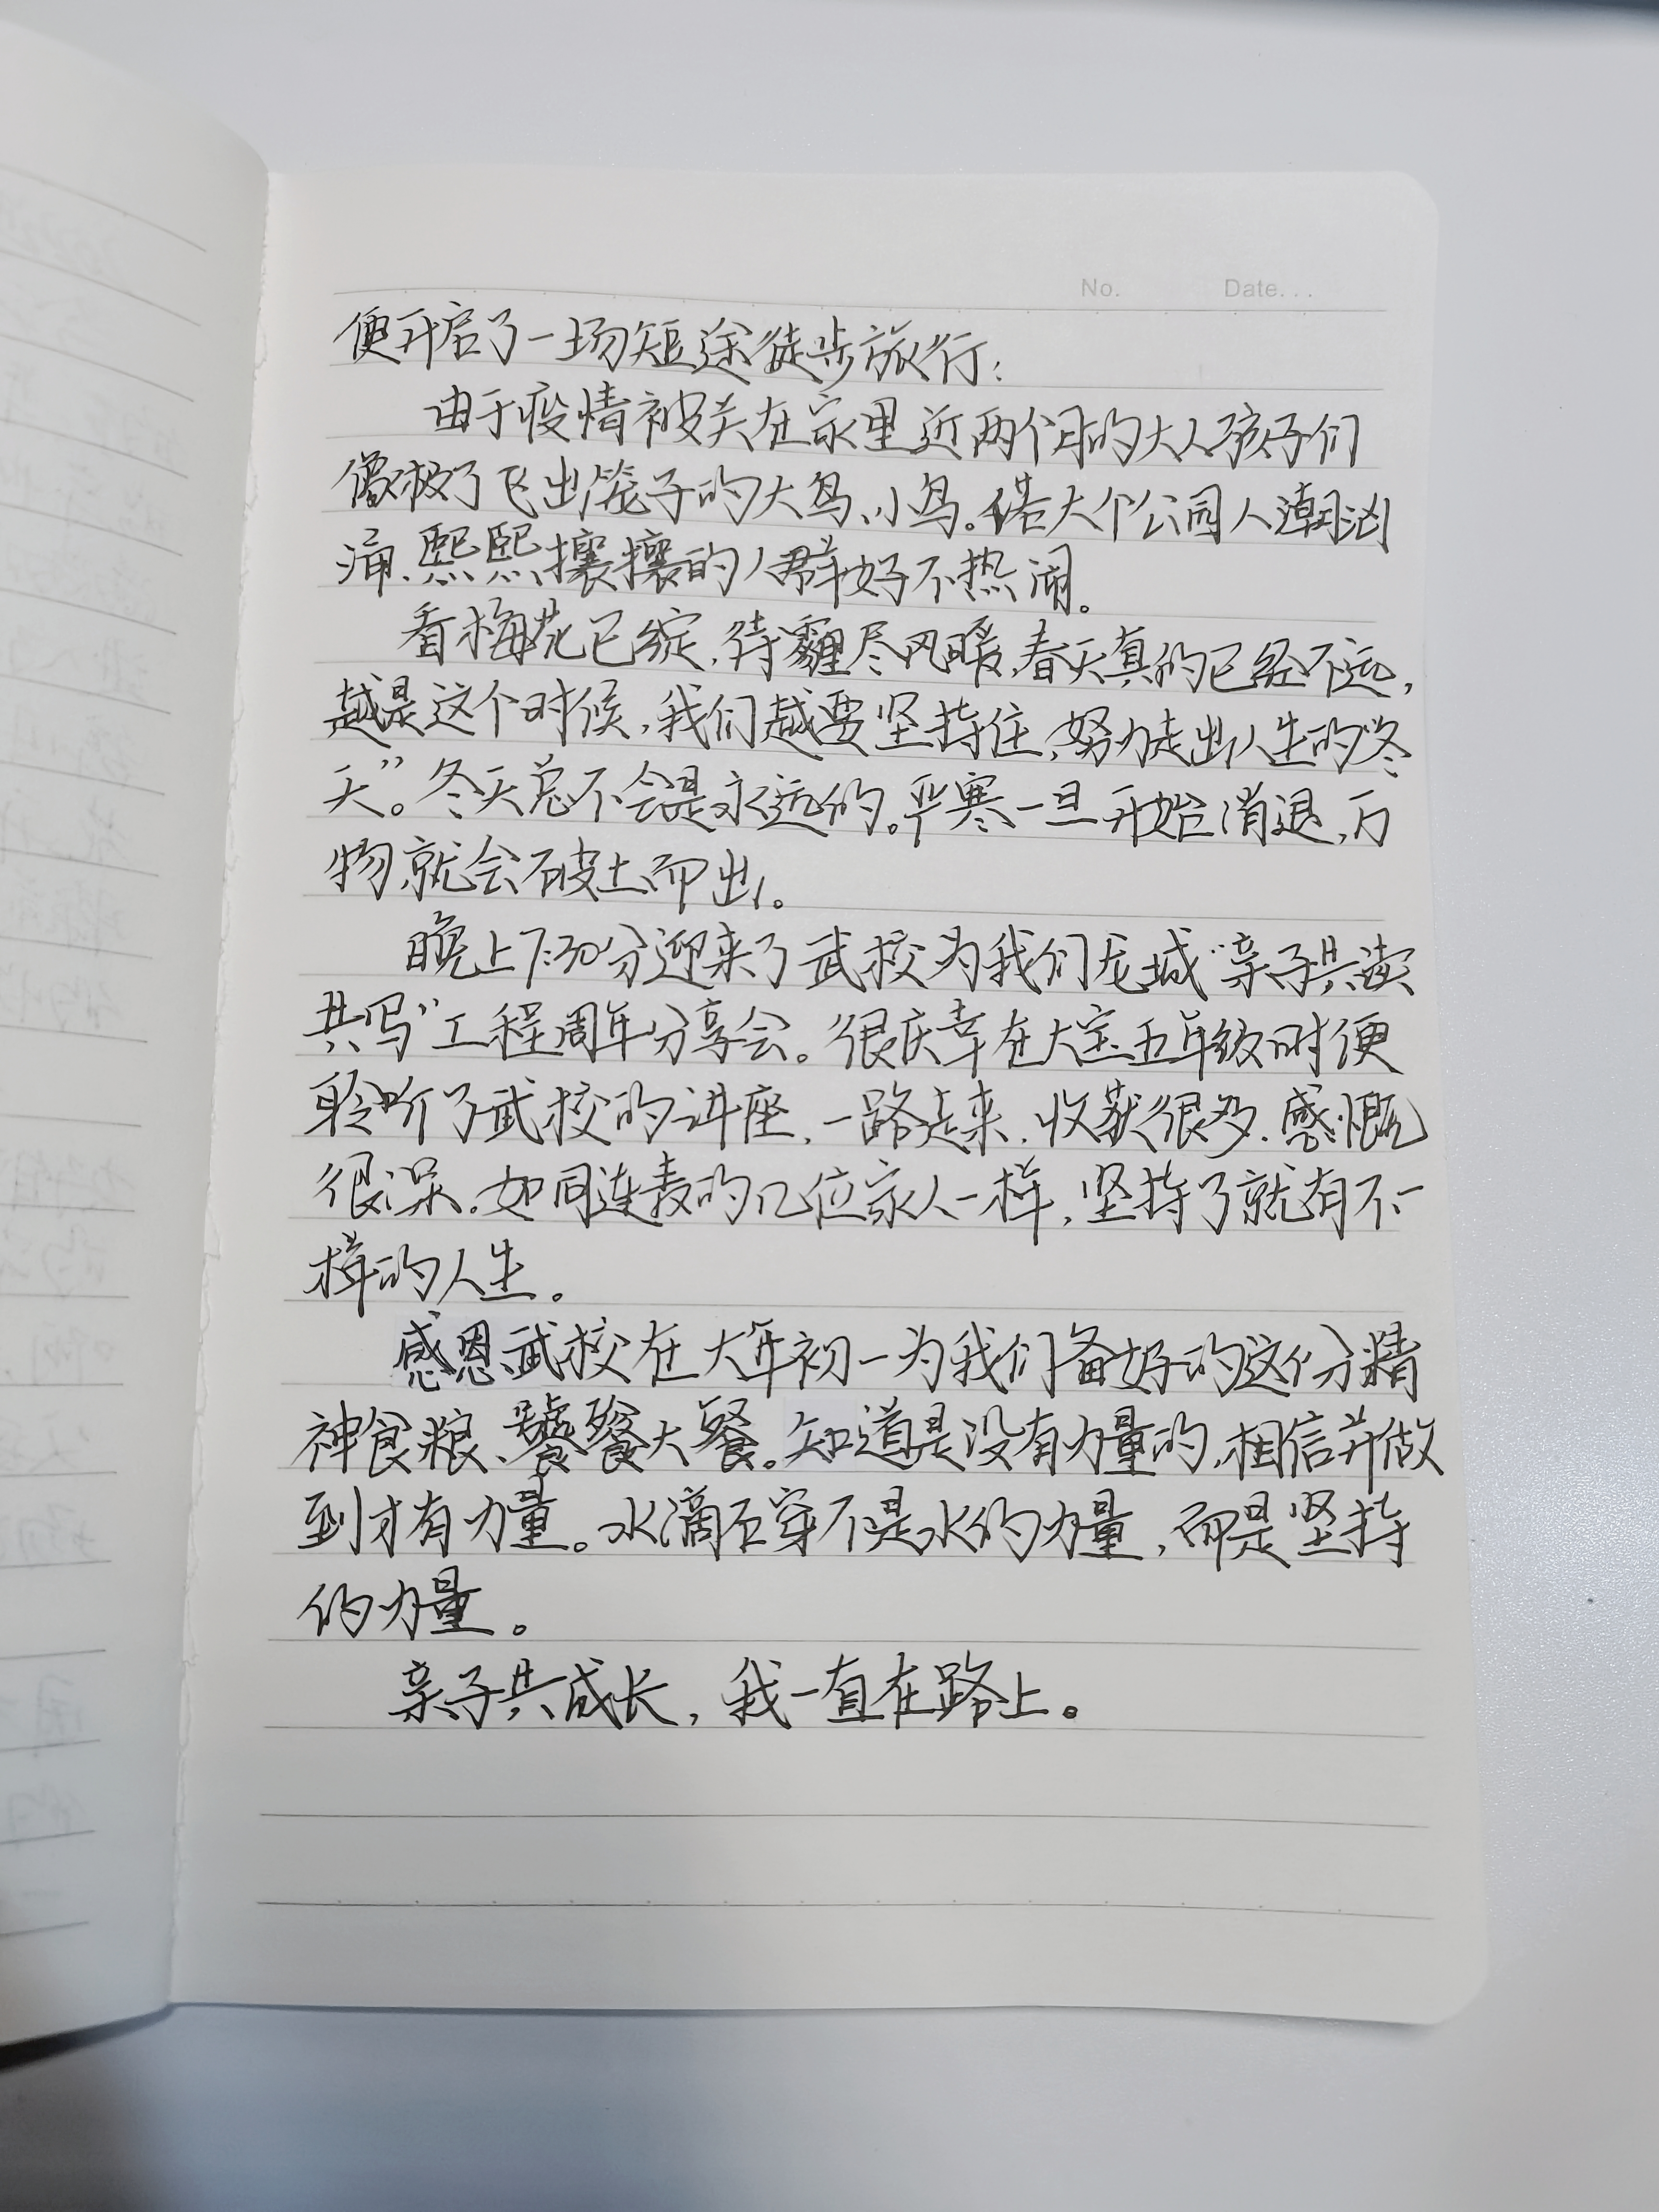 No.    Date...
便开启了一场短途徒步旅行:
由于疫情被关在家里近两个月的大人孩子们
像极了飞出笼子的大鸟、小鸟。偌大个公园人潮汹
涌、熙熙攘攘的人群好不热闹。
看梅花已绽,待霾尽风暖,春天真的已经不远,
越是这个时候,我们越要坚持住,努力走出人生的“冬
天”。冬天总不会是永远的。严寒一旦开始消退,万
物就会破土而出。
晚上7:30分迎来了武校为我们龙城“亲子共读
共写”工程周年分享会。很庆幸在大宝五年级时便
聆听了武校的讲座,一路走来,收获很多,感慨
很深。如同连麦的几位家人一样,坚持了就有不一
样的人生。
感恩武校在大年初一为我们备好的这份精
神食粮、饕餮大餐。知道是没有力量的,相信并做
到才有力量。水滴石穿不是水的力量,而是坚持
的力量。
亲子共成长,我一直在路上。